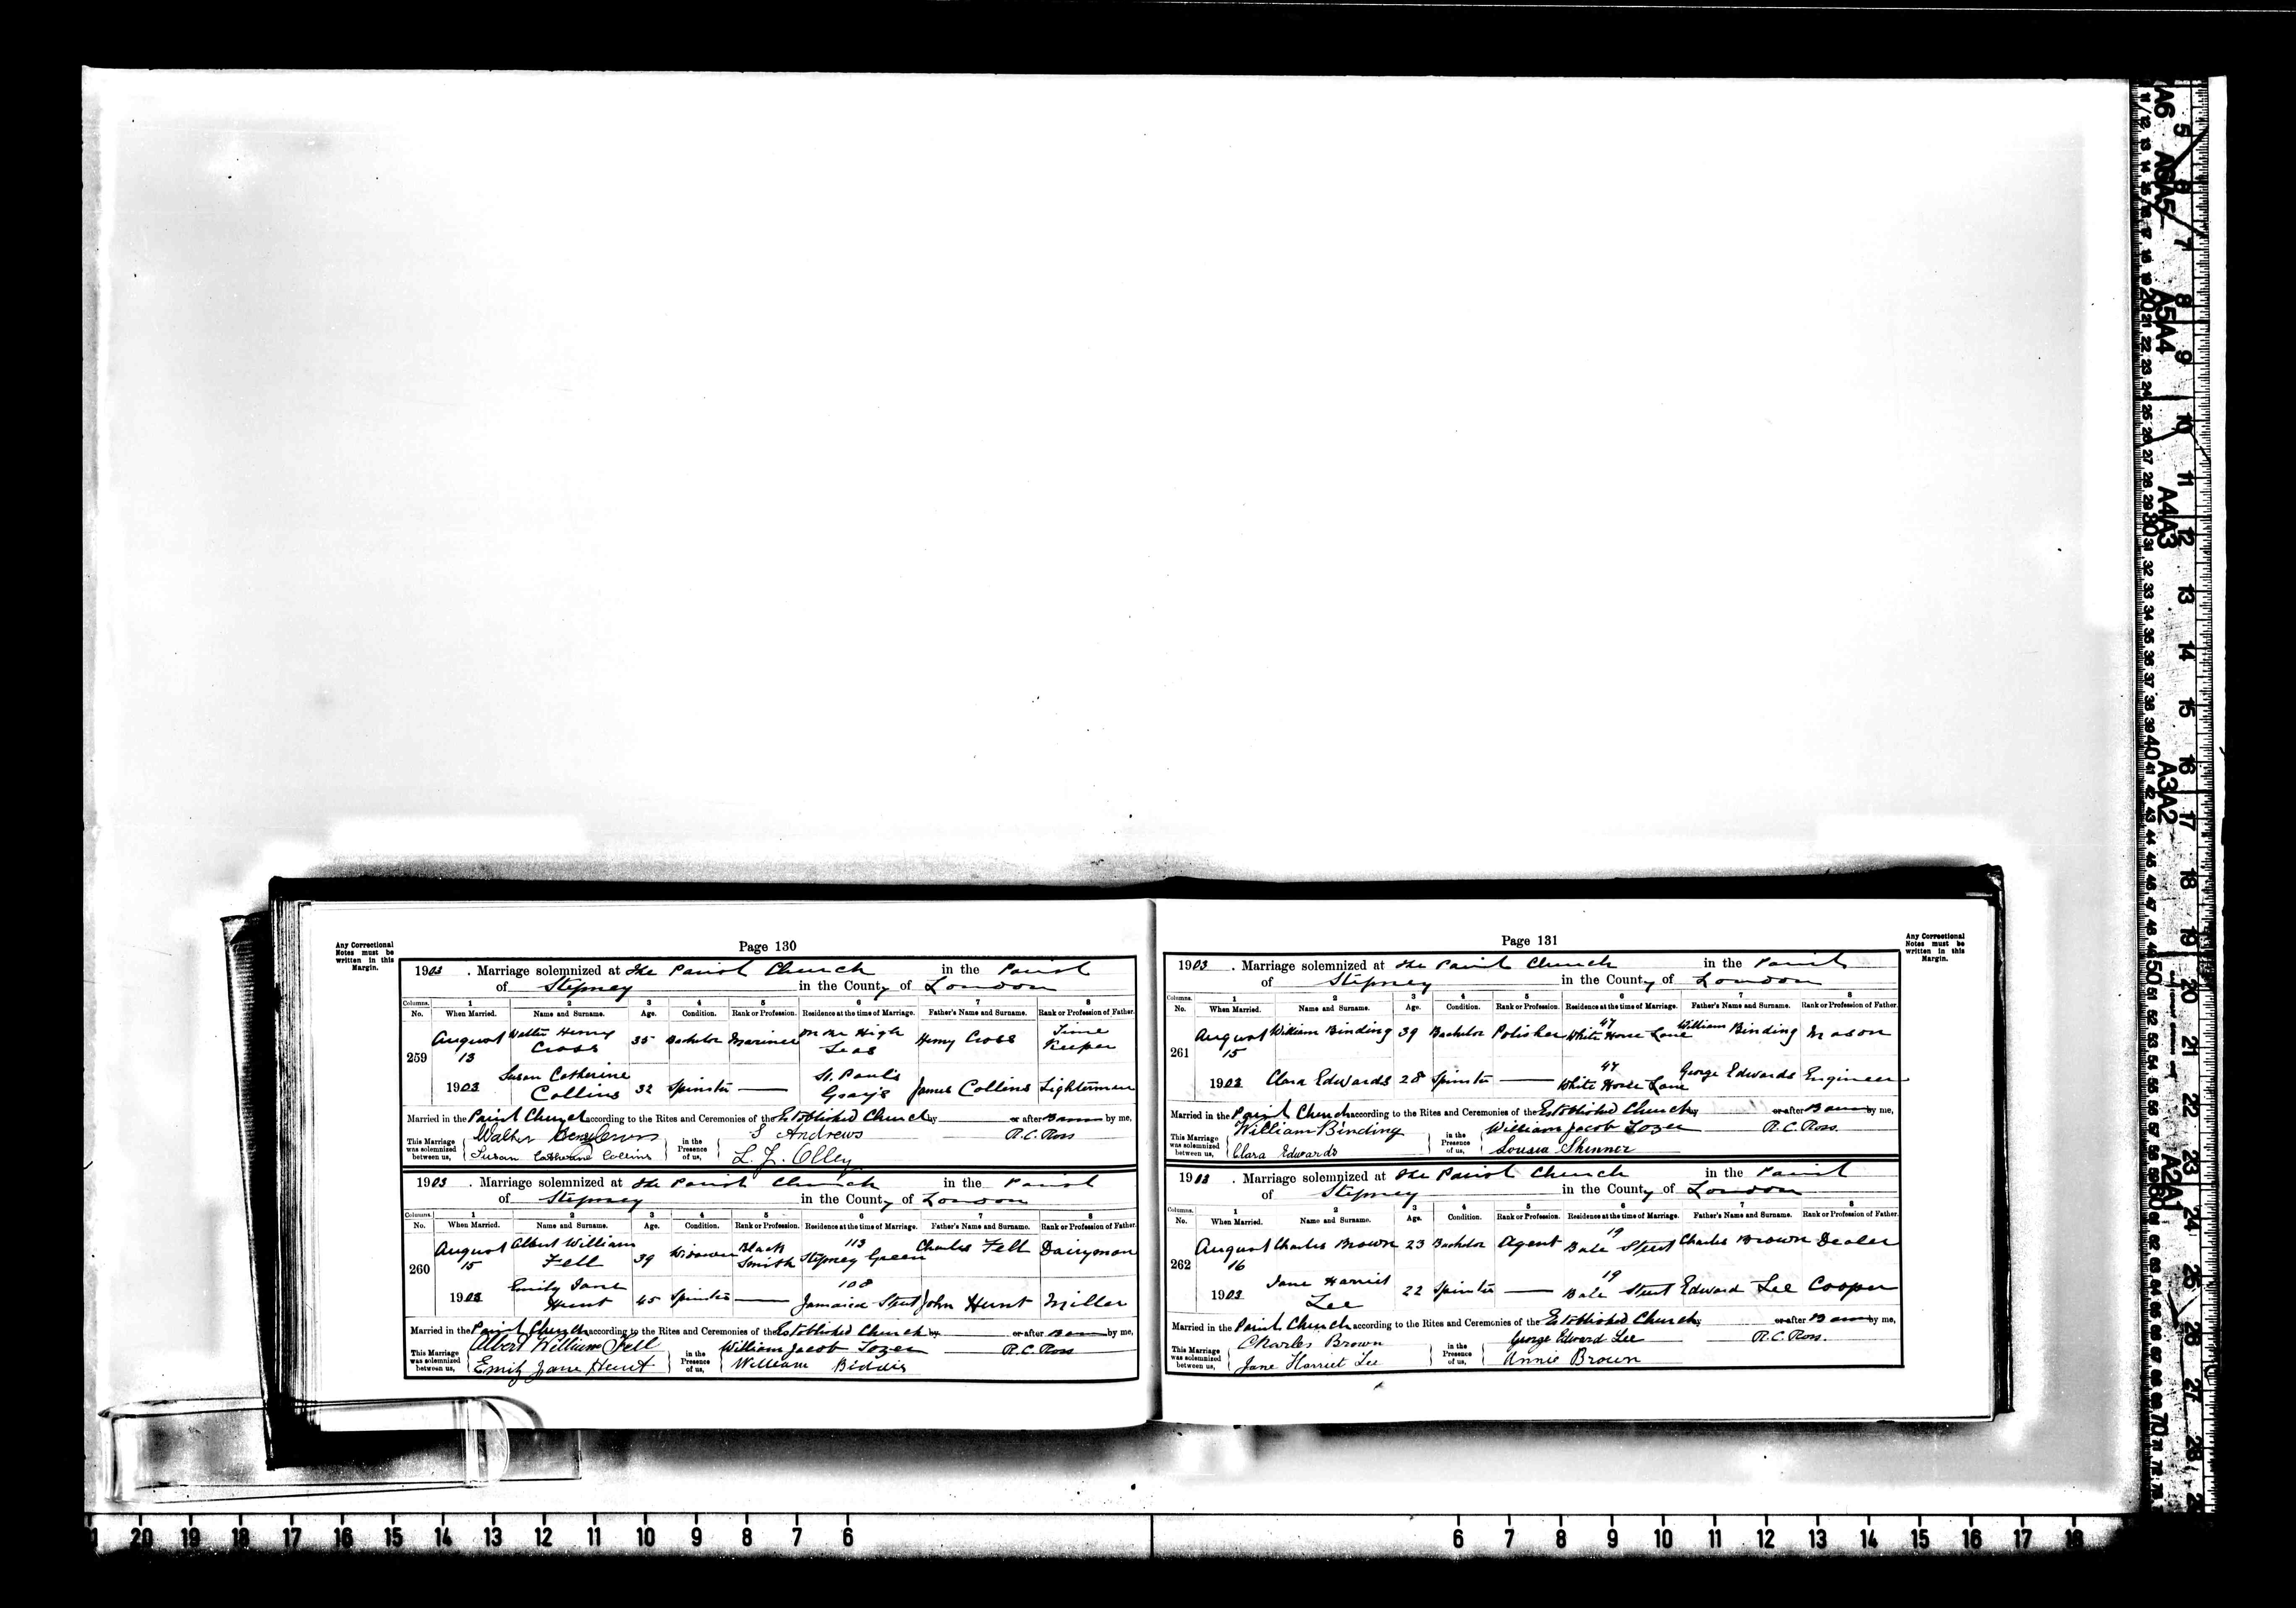 Any Correctional
Notes must be
written in this
Margin.
Page 130
1903. Marriage solemnized at the Parish Church in the Parish
of Stepney in the County of London
Columns. 1 2 3 4 5 6 7 8
No. When Married. Name and Surname. Age. Condition. Rank or Profession. Residence at the time of Marriage. Father's Name and Surname. Rank or Profession of Father.
259
August 13 1903
Walter Henry Cross 35 Bachelor Mariner On the High Seas Henry Cross Time Keeper
Susan Catherine Collins 32 Spinster — St. Paul's Grays James Collins Lighterman
Married in the Parish Church according to the Rites and Ceremonies of the Established Church by or after Banns by me,
This Marriage was solemnized between us, Walter Cross
Susan Catherine Collins
in the Presence of us, S Andrews
L. J. Olley
R.C. Ross
1903. Marriage solemnized at the Parish Church in the Parish
of Stepney in the County of London
Columns. 1 2 3 4 5 6 7 8
No. When Married. Name and Surname. Age. Condition. Rank or Profession. Residence at the time of Marriage. Father's Name and Surname. Rank or Profession of Father.
260
August 15 1903
Albert William Fell 39 Widower Black Smith 113 Stepney Green Charles Fell Dairyman
Emily Jane Hunt 45 Spinster — 108 Jamaica Street John Hunt Miller
Married in the Parish Church according to the Rites and Ceremonies of the Established Church by or after Banns by me,
This Marriage was solemnized between us, Albert William Fell
Emily Jane Hunt
in the Presence of us, William Jacob Tozer
William Biddis
R.C. Ross
Page 131
Any Correctional
Notes must be
written in this
Margin.
1903. Marriage solemnized at the Parish Church in the Parish
of Stepney in the County of London
Columns. 1 2 3 4 5 6 7 8
No. When Married. Name and Surname. Age. Condition. Rank or Profession. Residence at the time of Marriage. Father's Name and Surname. Rank or Profession of Father.
261
August 15 1903
William Binding 39 Bachelor Polisher 47 White Horse Lane William Binding Mason
Clara Edwards 28 Spinster — 47 White Horse Lane George Edwards Engineer
Married in the Parish Church according to the Rites and Ceremonies of the Established Church by or after Banns by me,
This Marriage was solemnized between us, William Binding
Clara Edwards
in the Presence of us, William Jacob Tozer
Louisa Skinner
R.C. Ross.
1903. Marriage solemnized at the Parish Church in the Parish
of Stepney in the County of London
Columns. 1 2 3 4 5 6 7 8
No. When Married. Name and Surname. Age. Condition. Rank or Profession. Residence at the time of Marriage. Father's Name and Surname. Rank or Profession of Father.
262
August 16 1903
Charles Brown 23 Bachelor Agent 19 Bale Street Charles Brown Dealer
Jane Harriet Lee 22 Spinster — 19 Bale Street Edward Lee Cooper
Married in the Parish Church according to the Rites and Ceremonies of the Established Church by or after Banns by me,
This Marriage was solemnized between us, Charles Brown
Jane Harriet Lee
in the Presence of us, George Edward Lee
Annie Brown
R.C. Ross.
20 19 18 17 16 15 14 13 12 11 10 9 8 7 6
6 7 8 9 10 11 12 13 14 15 16 17 18